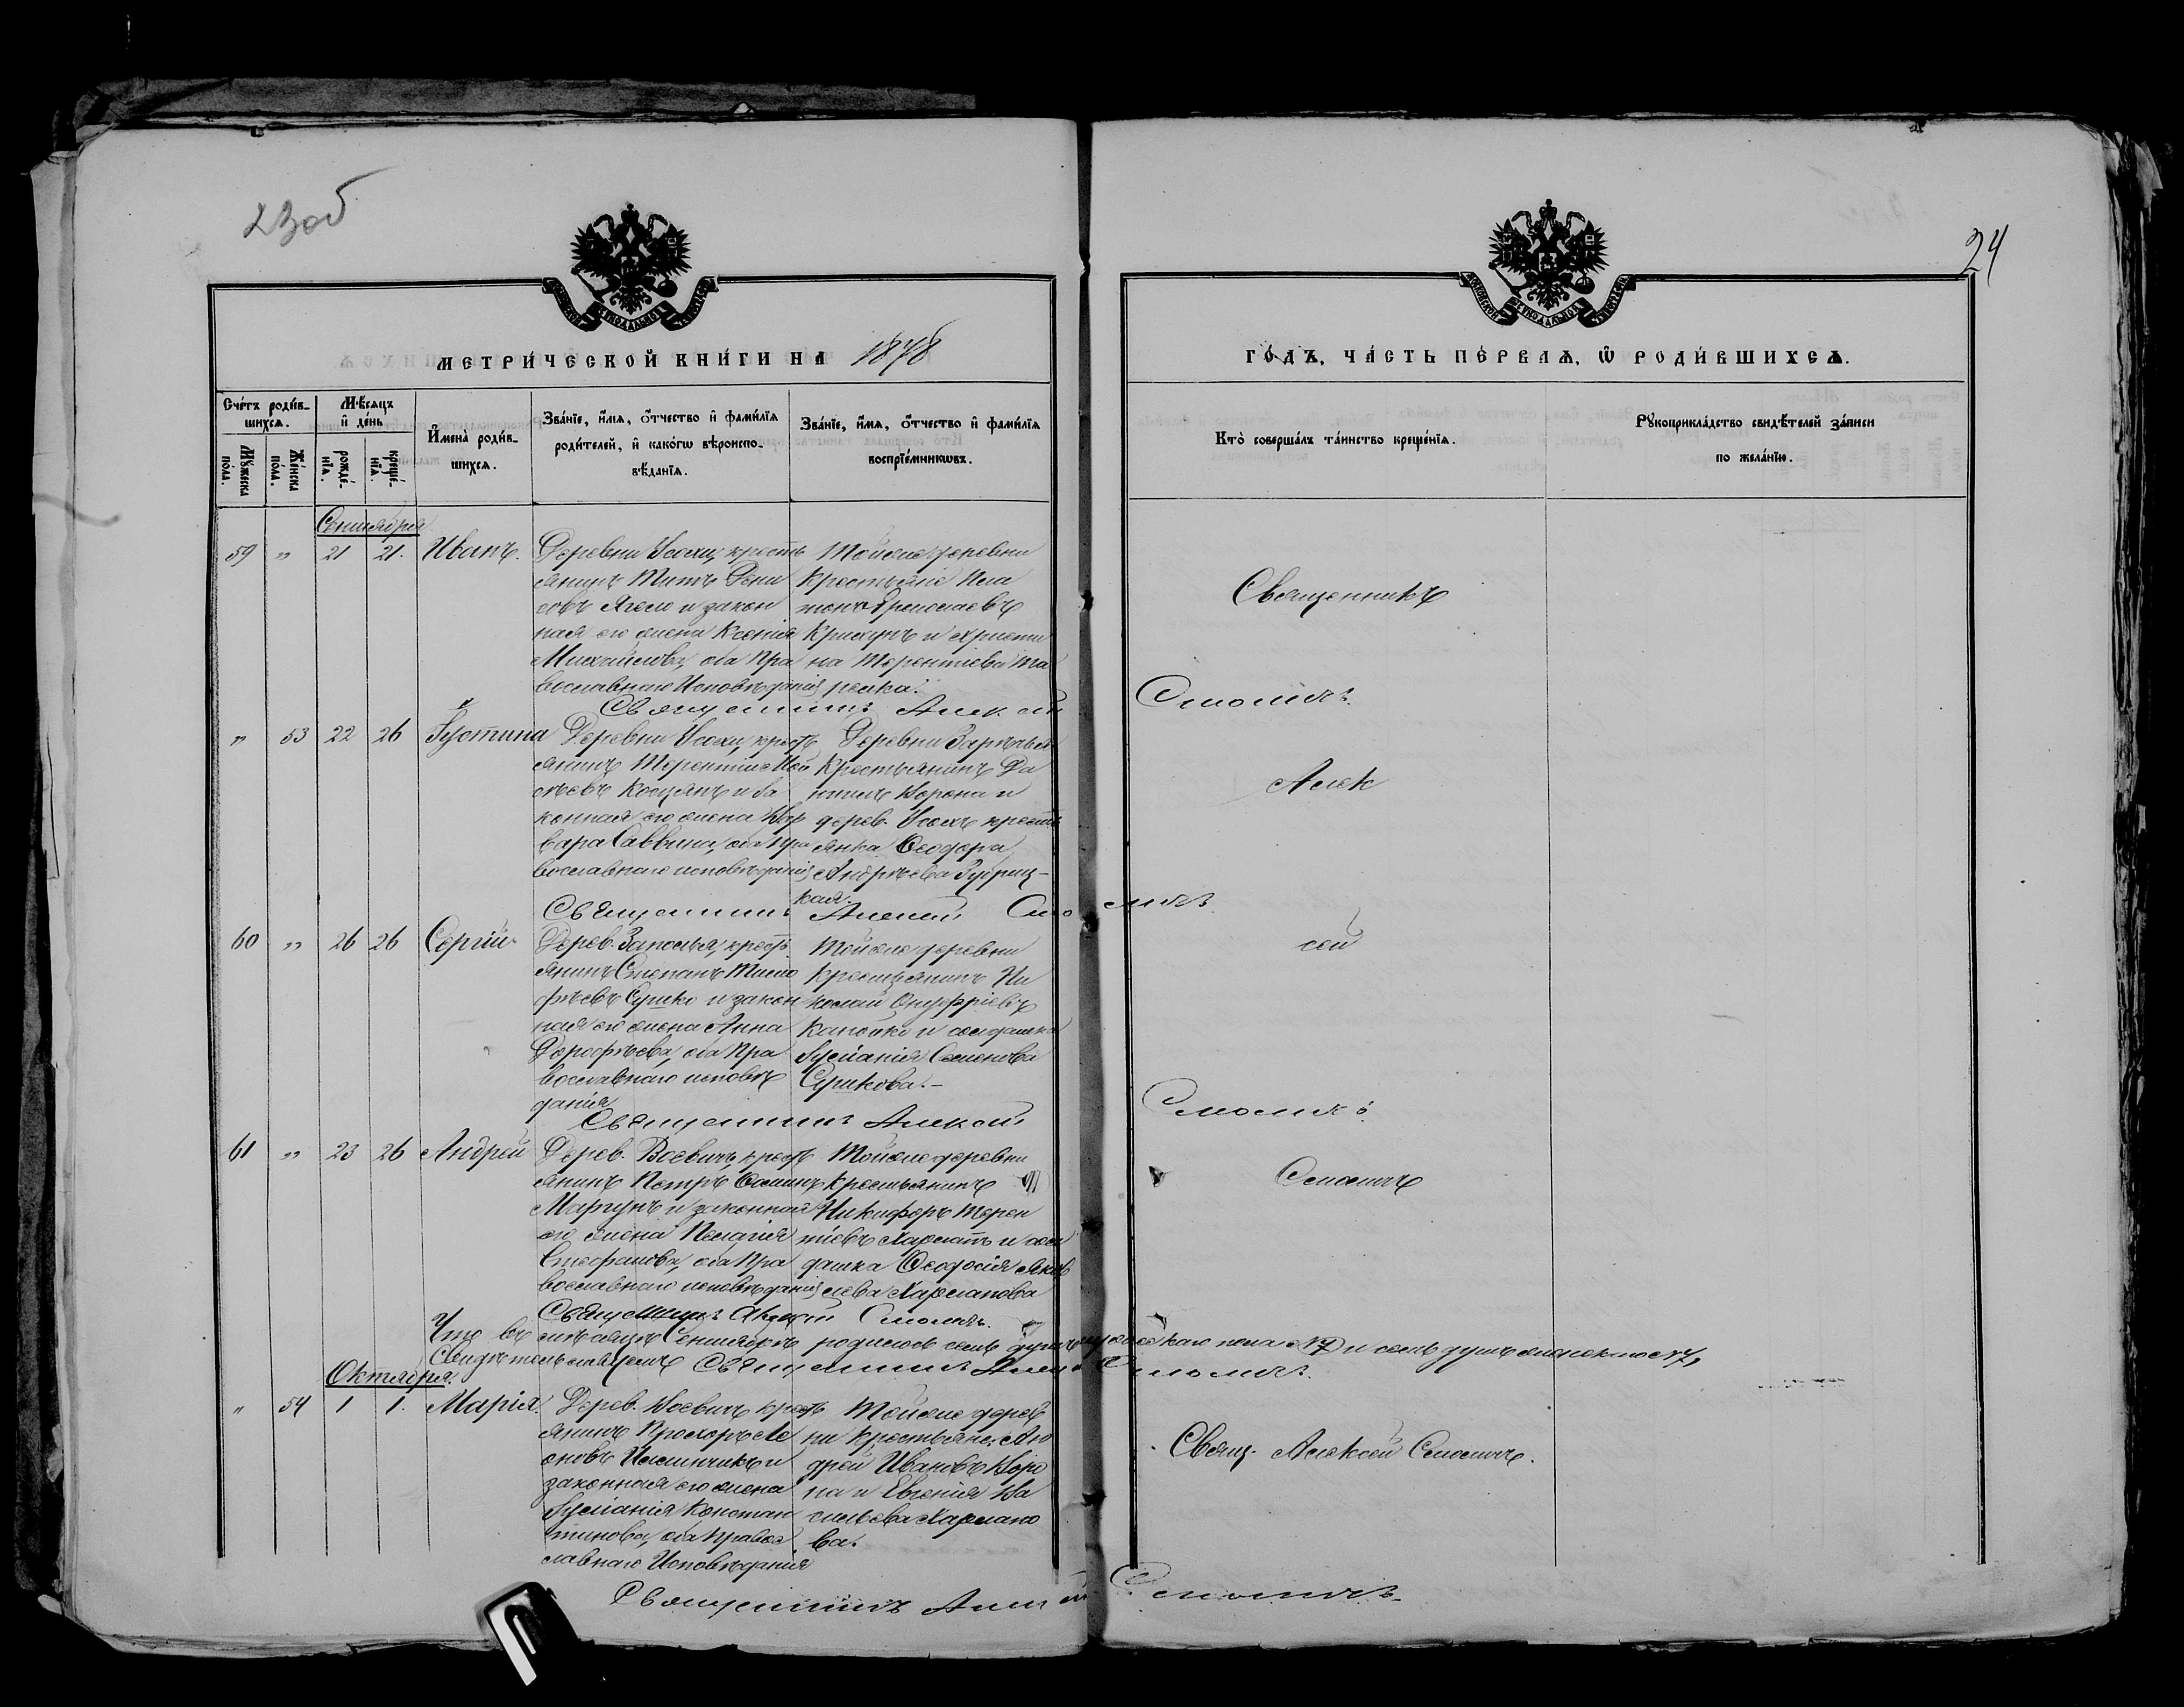 23об
24
МЕТРИЧЕСКОЙ КНИГИ НА 1878
ГОДЪ, ЧАСТЬ ПЕРВАЯ, Ѡ РОДИВШИХСЯ.
Счетъ родив-
шихся.
Мꙋжеска
пола.
Женска
пола.
Мѣсяцъ
и день
рожде-
нїя.
креще-
нїя.
Имена родив-
шихся.
Званїе, имя, отчество и фамилїя
родителей, и какогѡ вѣроиспо-
вѣданїя.
Званїе, имя, отчество и фамилїя
воспрїемникѡвъ.
Кто совершалъ таинство крещенїя.
Рꙋкоприкладство свидѣтелей записи
по желанїю.
Сентября
59 „ 21 21. Иванъ.
Деревни Усохи, кресть
янинъ Титъ Дени
совъ и закон
ная его жена Ксенія
Михайлова, оба Пра
вославнаго Исповѣданія
Тойже деревни
Крестьяне
и Христи
на Терентіева
Священникъ
Священникъ Алексій Смоличъ.
„ 53 22 26 Іустина
Деревни Усохи, крест
янинъ Терентій
и За
конная его жена Вар
вара Саввина, оба Пра
вославнаго исповѣданія
Деревни Зарѣчья
Крестьянинъ Да
ніилъ Ворона и
дерев. Усохъ кресть
янка Ѳеодора
Андрѣева
кая.
Алек
Священникъ Алексій Смоличъ
60 „ 26 26 Сергій
Дерев. Заполья, крест
янинъ Стефанъ Тимо
фѣевъ Сушко и закон
ная его жена Анна
Дорофѣева, оба Пра
вославнаго исповѣ
данія
Тойже деревни
Крестьянинъ Ни
колай Онуфріевъ
и солдатка
Іуліанія Семенова
Сушкова.-
сей
Священникъ Алексій Смоличъ.
61 „ 23 26 Андрей
Дерев. Воевичъ, крест
янинъ Петръ Ѳоминъ
и законная
его жена Пелагія
Стефанова, оба Пра
вославнаго исповѣданія
Тойже деревни
крестьянинъ
Никифоръ Терен
тіевъ и сол
датка Ѳеодосія Яков
лева Харланова
Смоличъ
Священникъ Алексій Смоличъ.
Что въ мѣсяцѣ Сентябрѣ родилось семь душъ мужескаго пола №7 и семь душъ женскаго №7,
Свидѣтельствуемъ Священникъ Алексій Смоличъ.
Октября.
„ 54 1 1. Марія.
Дерев. Воевичъ крест
янинъ Прохоръ Ле
оновъ и
законная его жена
Іуліанія Констан
тинова, оба Право
славнаго Исповѣданія
Тойже дерев
ни Крестьяне: Ан
дрей Ивановъ Воро
на и Евгенія Ва
сильева Харлано
ва.
Свящ. Алексѣй Смоличъ.
Священникъ Алексій Смоличъ.